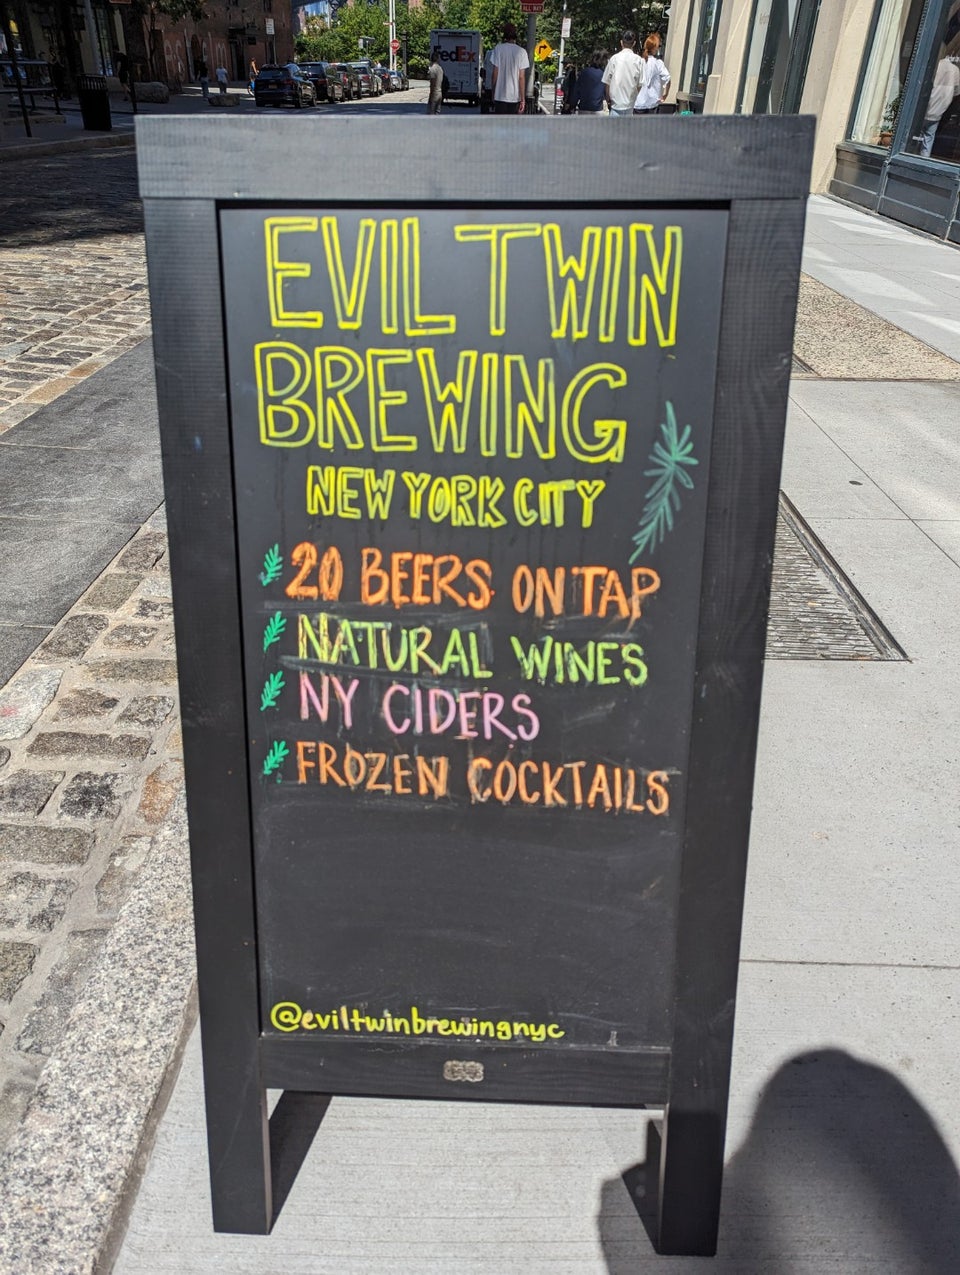 FedEx
ALL WAY
EVIL TWIN
BREWING
NEW YORK CITY
20 BEERS ON TAP
NATURAL WINES
NY CIDERS
FROZEN COCKTAILS
@eviltwinbrewingnyc